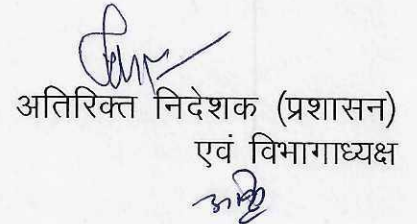 अतिरिक्त निदेशक (प्रशासन)
एवं विभागाध्यक्ष